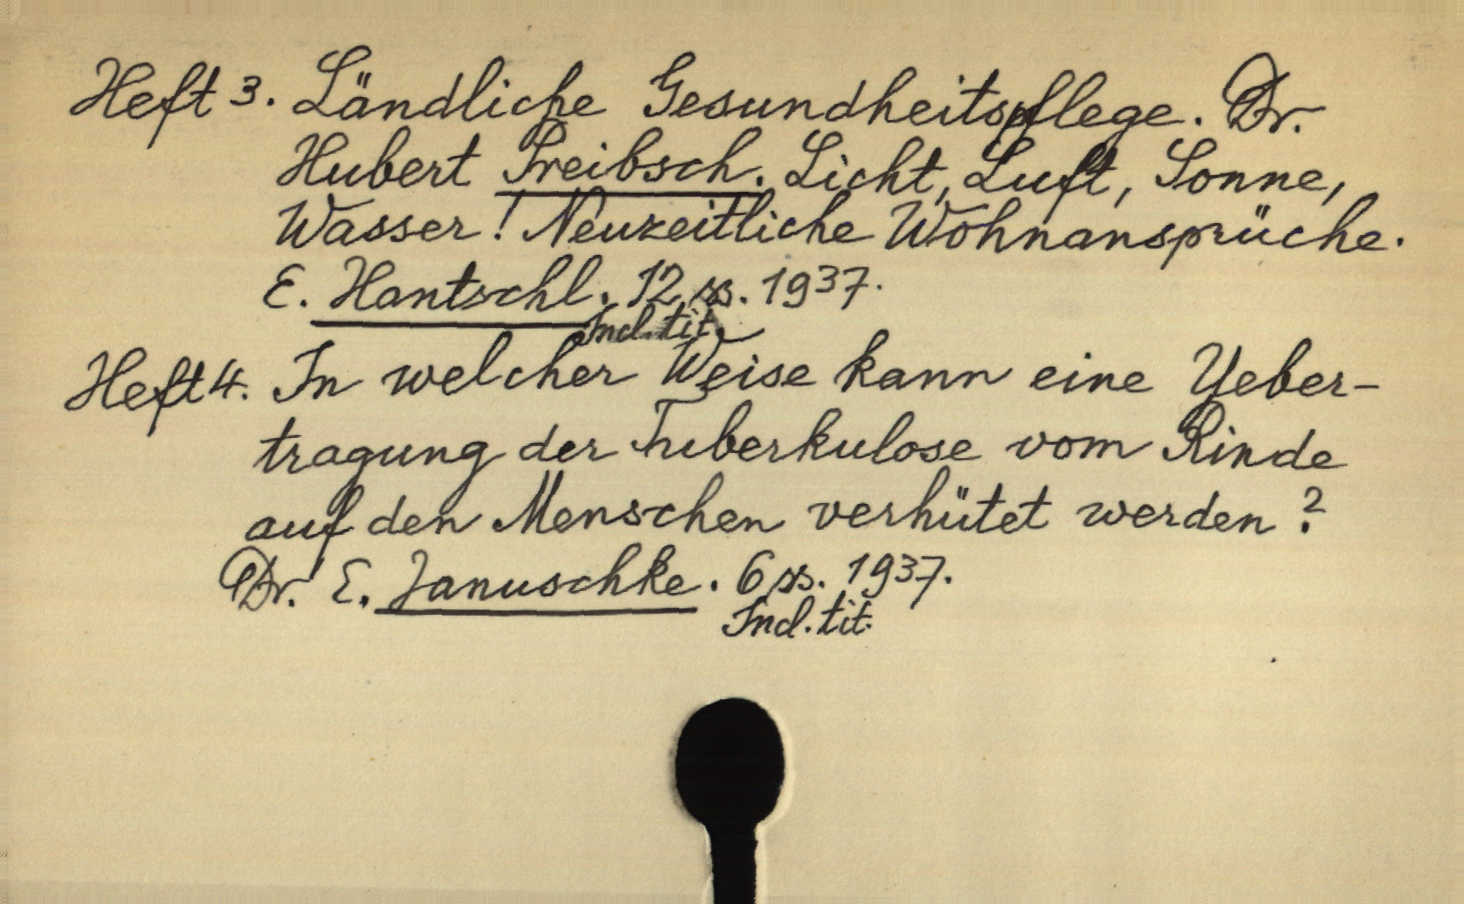 Heft 3. Ländliche Gesundheitspflege. Dr.
Hubert Preibsch. Licht, Luft, Sonne,
Wasser! Neuzeitliche Wohnansprüche.
E. Hantschl. 12 ss. 1937.
Incl. tit.
Heft 4. In welcher Weise kann eine Ueber-
tragung der Tuberkulose vom Rinde
auf den Menschen verhütet werden?
Dr. E. Januschke. 6 ss. 1937.
Incl. tit.